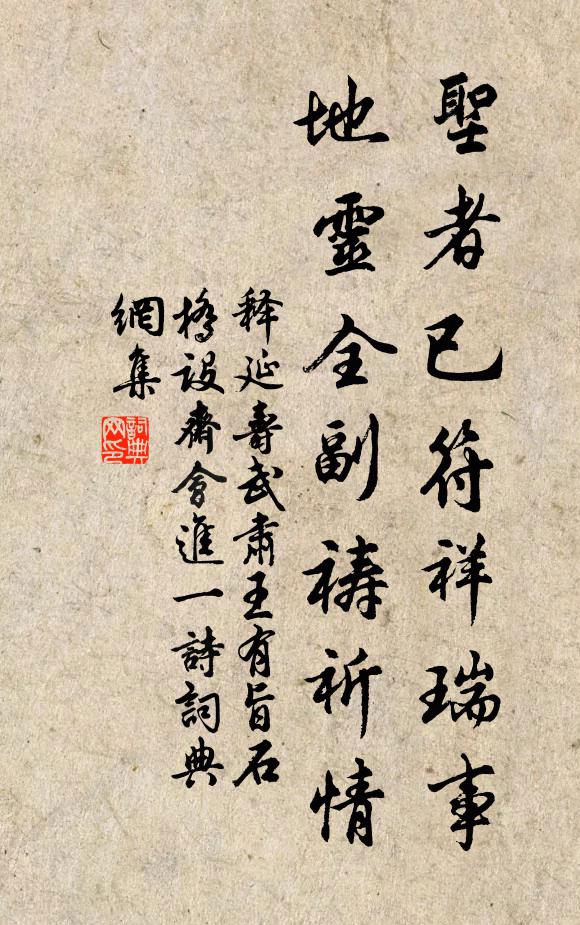 聖者已符祥瑞事
地靈全副禱祈情
释延壽武肅王有旨石
橋設齋會進一詩詞典
網集
詞典
网印